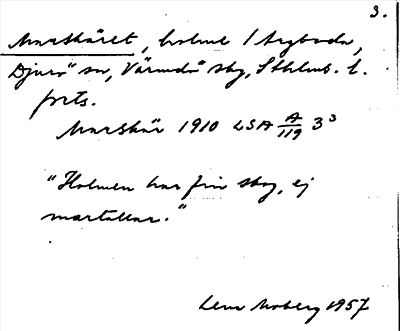 3.
Marskäret, holme / Aspboda,
Djurö sn, Värmdö skg, Sthlms. l.
forts.
Marskär 1910 LSA A/119 3³
"Holmen har fin skog, ej
martallar."
Lena Moberg 1957